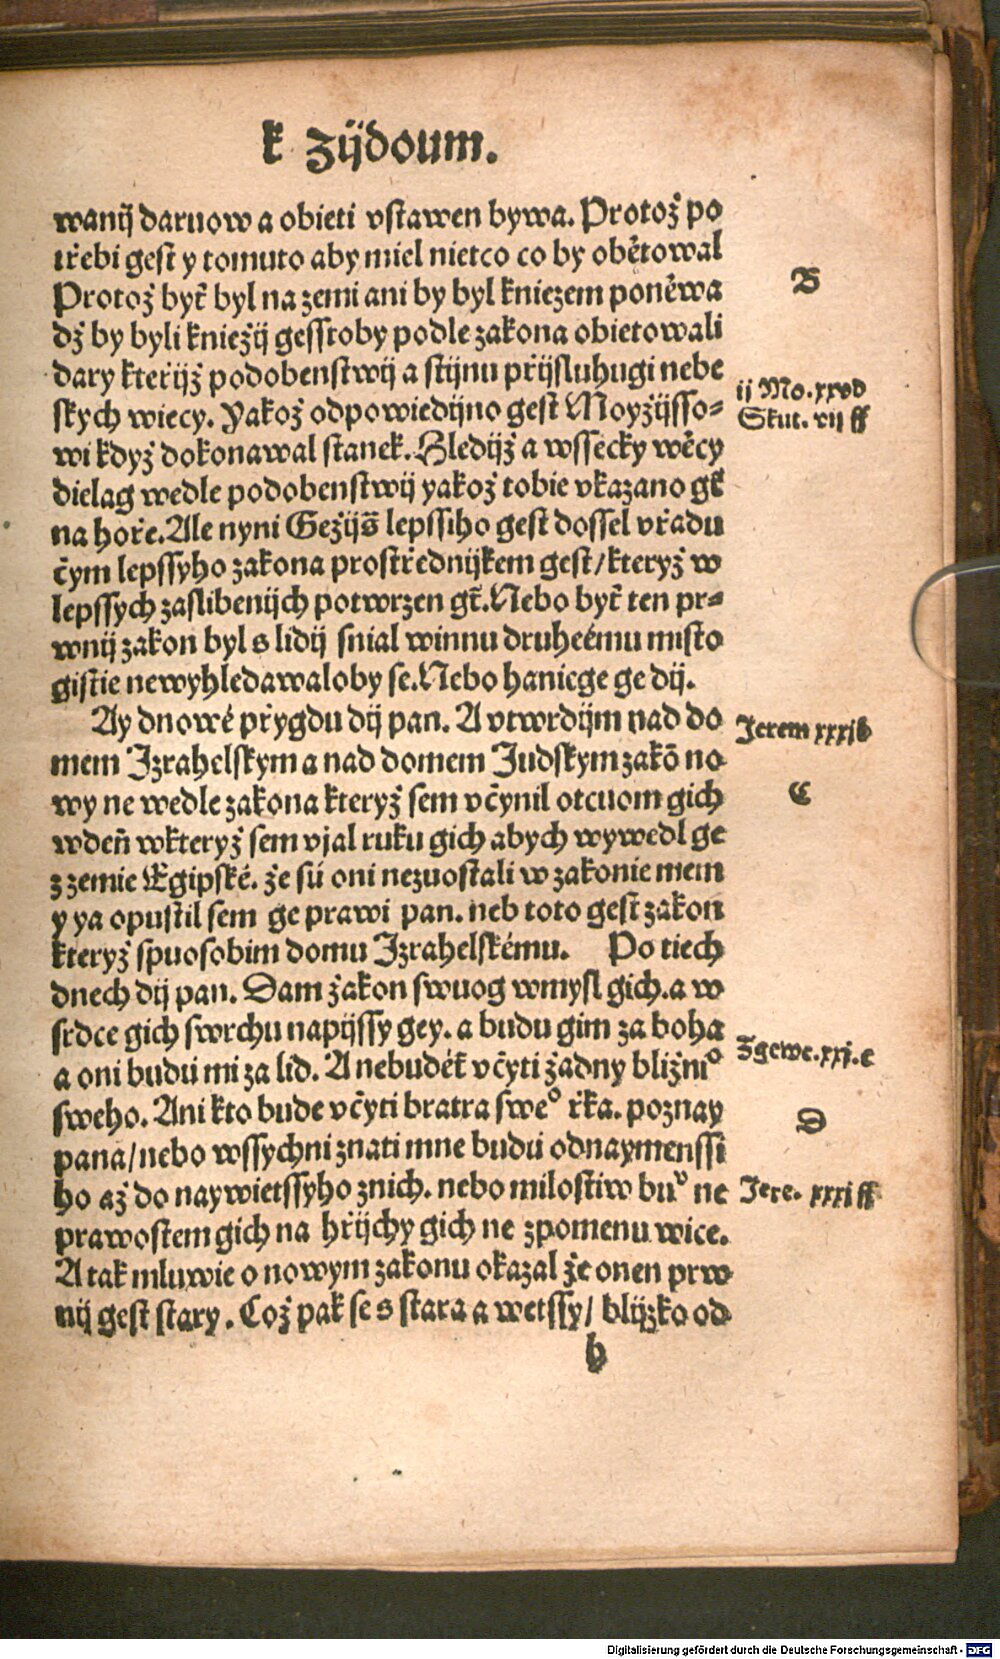 k zijdoum.
wanij daruow a obieti vstawen bywa. Protož po
třebi gest y tomuto aby miel nietco co by obětowal
B
Protož byť byl na zemi ani by byl kniezem poněwa
dž by byli kniežij gesstoby podle zakona obietowali
dary kteřijž podobenstwij a stijnu přijsluhugi nebe
ij Mo. xxvd
skych wiecy. Yakož odpowiedijno gest Moyžijsso-
Skut. vij ff
wi když dokonawal stanek. Hledijž a wssecky wěcy
dielag wedle podobenstwij yakož tobie vkazano gť
na hoře. Ale nyni Gežijš lepssiho gest dossel vřadu
čym lepssyho zakona prostřednijkem gest/kteryž w
lepssych zaslibenijch potwrzen gť. Nebo byť ten pr-
wnij zakon byl s lidij snial winnu druheému misto
gistie newyhledawaloby se. Nebo haniege ge dij.
Ay dnowé přygdu dij pan. A vtwrdijm nad do
Jerem xxxib
mem Izrahelskym a nad domem Judskym zakō no
wy ne wedle zakona kteryž sem včynil otcuom gich
C
wdeň wkteryž sem vjal ruku gich abych wywedl ge
z zemie Egipské. že sú oni nezuostali w zakonie mem
y ya opustil sem ge prawi pan. neb toto gest zakon
kteryž spuosobim domu Izrahelskému. Po tiech
dnech dij pan. Dam žakon swuog wmysl gich. a w
srdce gich swrchu napijssy gey. a budu gim za boha
Zgewe. xxj. c
a oni budú mi za lid. A nebudéť včyti žadny bližniº
sweho. Ani kto bude včyti bratra sweº řka. poznay
D
pana/nebo wssychni znati mne budú odnaymenssi
ho až do naywietssyho znich. nebo milostiw buᵛ ne
Jere. xxxi ff
prawostem gich na hřijchy gich ne zpomenu wice.
A tak mluwie o nowym zakonu okazal že onen prw
nij gest stary. Což pak se s stara a wetssy/ blijzko od
b
Digitalisierung gefördert durch die Deutsche Forschungsgemeinschaft - DFG